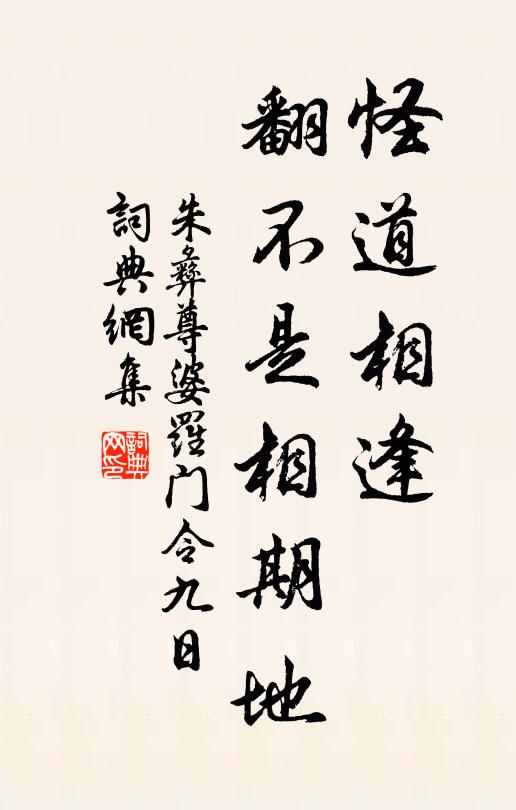 怪道相逢
翻不是相期地
朱彝尊婆羅门令九日
詞典網集
詞典
网印